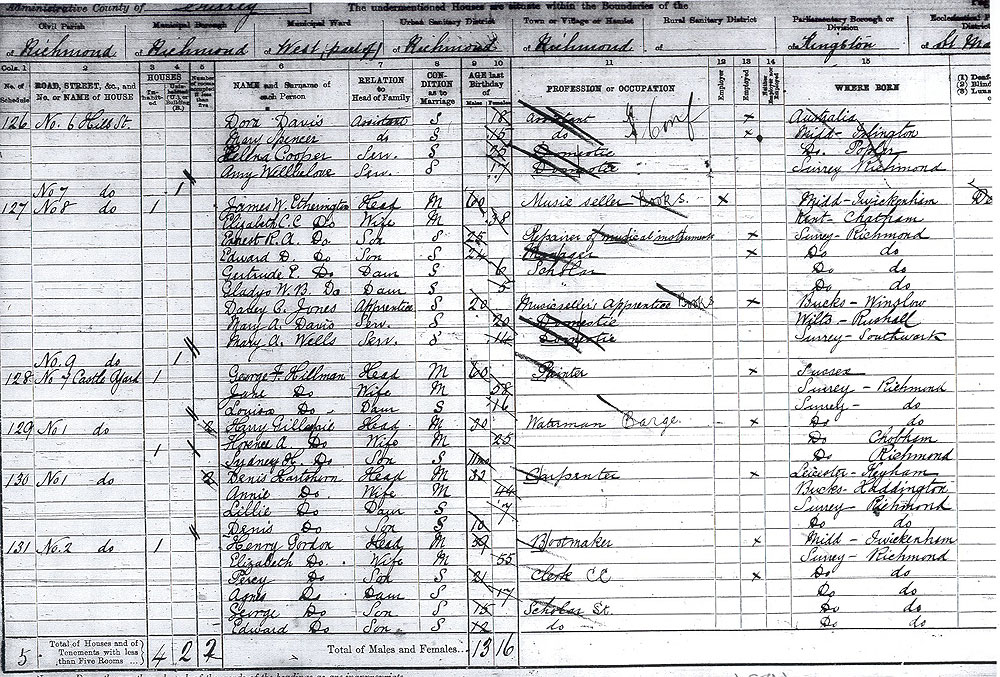 Administrative County of Surrey The undermentioned Houses are situate within the Boundaries of the
Civil Parish Municipal Borough Municipal Ward Urban Sanitary District Town or Village or Hamlet Rural Sanitary District Parliamentary Borough or Division Ecclesiastical P
of Richmond of Richmond of West (part of) of Richmond of Richmond of of Kingston of St
Cols. 1 2 3 4 5 6 7 8 9 10 11 12 13 14 15
No. of Schedule ROAD, STREET, &c., and No. or NAME of HOUSE HOUSES NAME and Surname of each Person RELATION to Head of Family CONDITION as to Marriage AGE last Birthday of Males Females PROFESSION or OCCUPATION Employer Employed WHERE BORN (1) Deaf- (2) Blind (3) Luna
126 No. 6 Hill St. Dora Davis Assistant S 18 Assistant Conf x Australia
Mary Spencer do S 15 do x Midd - Islington
Helena Cooper Serv. S 25 Domestic Do. Poplar
Amy Serv. S 17 Domestic Surrey Richmond
No 7 do 1
127 No 8 do 1 James W. Etherington Head M 60 Music seller - Books x Midd - Twickenham
Elizabeth C. C. Do Wife M 38 Kent - Chatham
Ernest R. A. Do Son S 25 Repairer of musical instruments x Surrey - Richmond
Edward D. Do Son S 24 x Do do
Gertrude E. Do Daur S 6 Scholar Do do
Gladys W. B. Do Daur S 5 Do do
C. Jones Apprentice S 20 Musicseller's Apprentice Books x Bucks - Winslow
Mary A. Davis Serv. S 20 Domestic Wilts - Rushall
Mary A. Wells Serv. S 14 Domestic Surrey - Southwark
No. 9 do 1
128 No 7 Castle Yard 1 George F. Hillman Head M 60 Painter x Sussex
Jane Do Wife M 58 Surrey - Richmond
Louisa Do - Daur S 16 Surrey - do
129 No 1 do 2 Harry Gillespie Head M 30 Waterman Barge x Do do
1 Florence A. Do Wife M 25 Do Chobham
Sydney H. Do Son S 11mo Do Richmond
130 No 1 do 2 Denis Hartshorn Head M 33 Carpenter x Leicester - Keyham
Annie Do. Wife M 44 Bucks - Haddington
Lillie Do Daur S 7 Surrey - Richmond
Denis Do Son S 10 Do do
131 No. 2 do 1 Henry Gordon Head M 39 Bootmaker x Midd - Twickenham
Elizabeth Do. Wife M 55 Surrey - Richmond
Percy Do Son S 21 Clerk CC x Do do
Agnes Do Daur S 17 Do do
George Do Son S 15 Scholar St. Do do
Edward Do Son S 12 do Do do
5 Total of Houses and of Tenements with less than Five Rooms ... 4 2 2 Total of Males and Females... 13 16